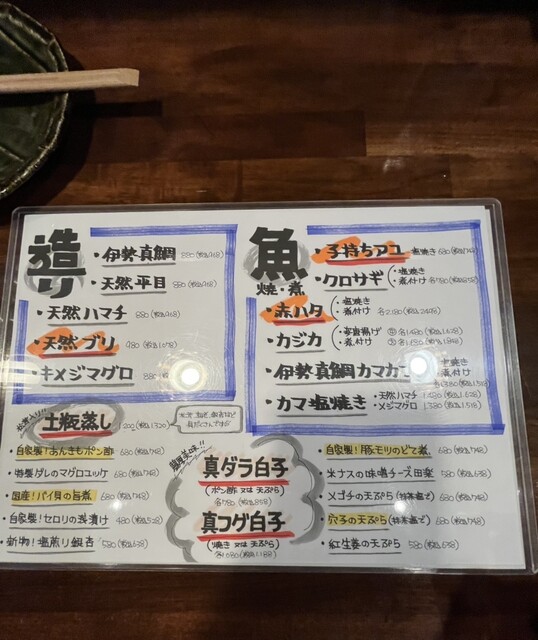 造り
・伊勢真鯛 880(税込968)
・天然平目 880(税込968)
・天然ハマチ 880(税込968)
・天然ブリ 980(税込1078)
・キメジマグロ
魚
焼・煮
・子持ちアユ 塩焼き 680(税込748)
・クロサギ ・塩焼き ・煮付け
・赤ハタ ・塩焼き ・煮付け
・カジカ ・煮付け
・伊勢真鯛カマカブト 塩焼き
・カマ塩焼き ・天然ハマチ ・メジマグロ
松茸入り!!
土瓶蒸し 1200(税込1320)
・自家製!あんきもポン酢 680(税込748)
・特製ダレのマグロユッケ 680(税込748)
・国産!バイ貝の旨煮 680(税込748)
・自家製!セロリの浅漬け 480(税込528)
・新物!塩煎り銀杏 580(税込638)
真ダラ白子
(ポン酢 又は 天ぷら)
各780(税込858)
真フグ白子
(焼き 又は 天ぷら)
各1080(税込1188)
・自家製!豚モツのどて煮 680(税込748)
・米ナスの味噌チーズ田楽 580(税込638)
・メゴチの天ぷら(抹茶塩で) 680(税込748)
・穴子の天ぷら(抹茶塩で) 680(税込748)
・紅生姜の天ぷら 580(税込638)